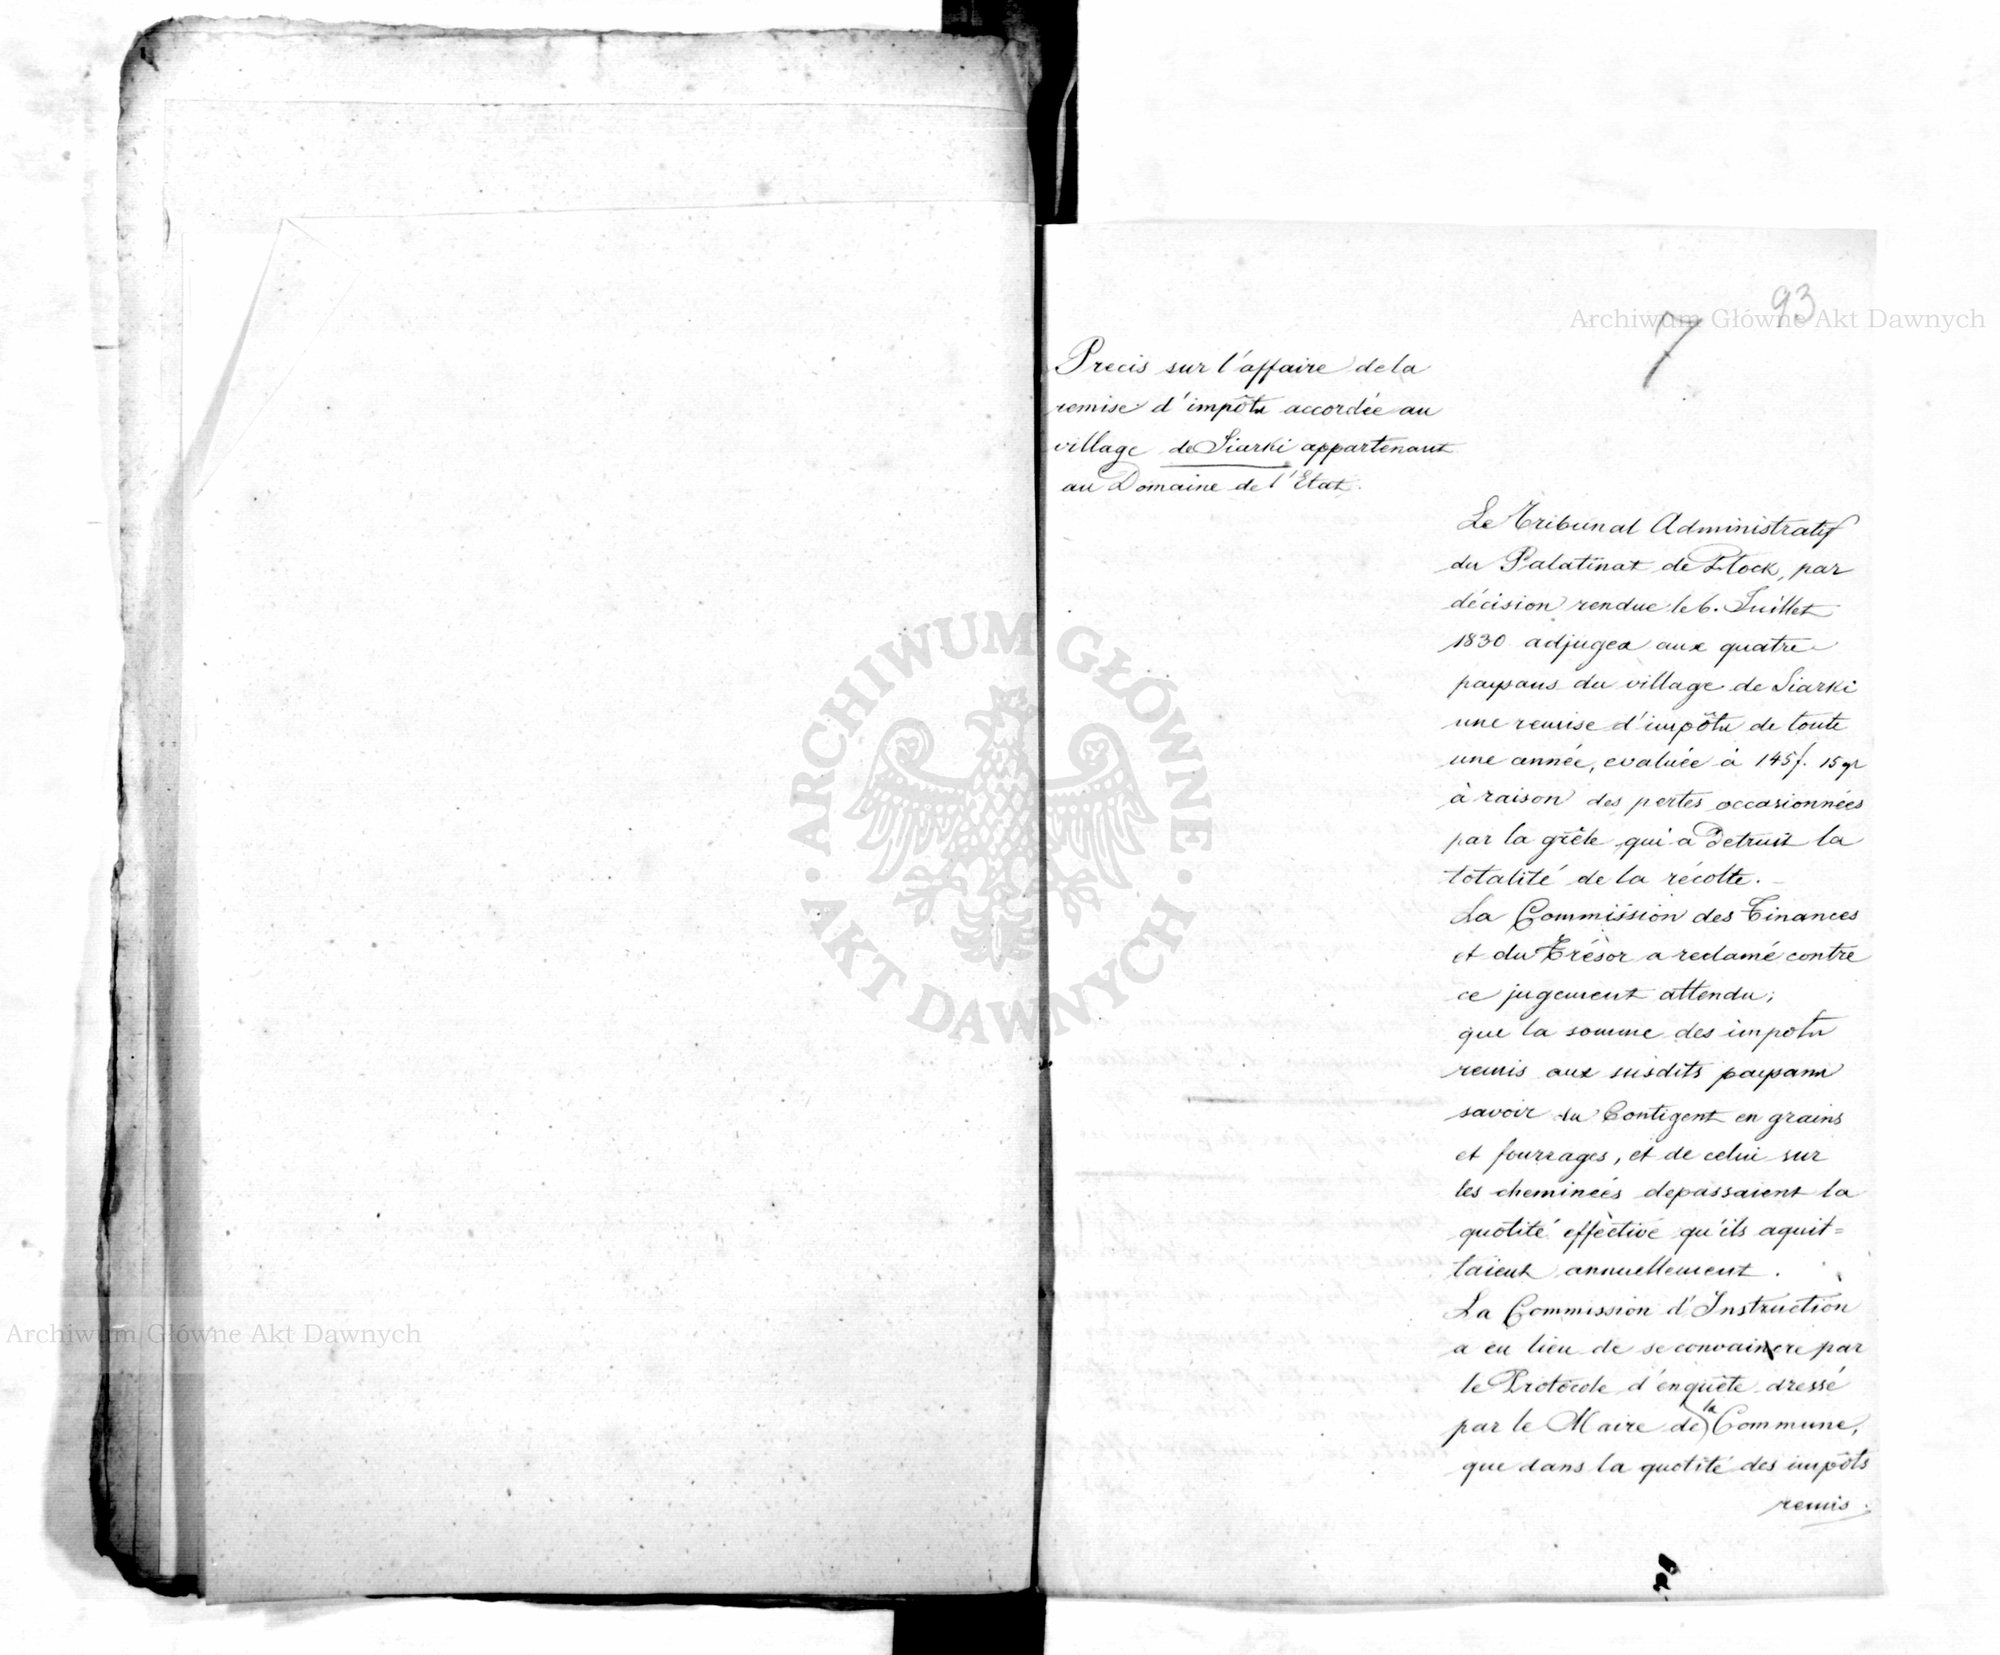 93
7
Precis sur l'affaire de la
remise d'impôts accordée au
village de Siarki appartenant
au Domaine de l'Etat.
Le Tribunal Administratif
du Palatinat de Płock, par
décision rendue le 6. Juillet
1830 adjugea aux quatre
paysans du village de Siarki
une remise d'impôts de toute
une année, evaluée à 145f. 15 gr
à raison des pertes occasionnées
par la grêle qui a Detruit la
totalité de la récolte. –
La Commission des Finances
et du Trésor a reclamé contre
ce jugement attendu;
que la somme des impots
remis aux susdits paysans
savoir du Contigent en grains
et fourrages, et de celui sur
les cheminées depassaient la
quotité effective qu'ils aquit=
taient annuellement.
La Commission d'Instruction
a eu lieu de se convaincre par
le Protocole d'enquête dressé
par le Maire de la Commune,
que dans la quotité des impôts
remis
Archiwum Główne Akt Dawnych
ARCHIWUM GŁÓWNE
AKT DAWNYCH
Archiwum Główne Akt Dawnych